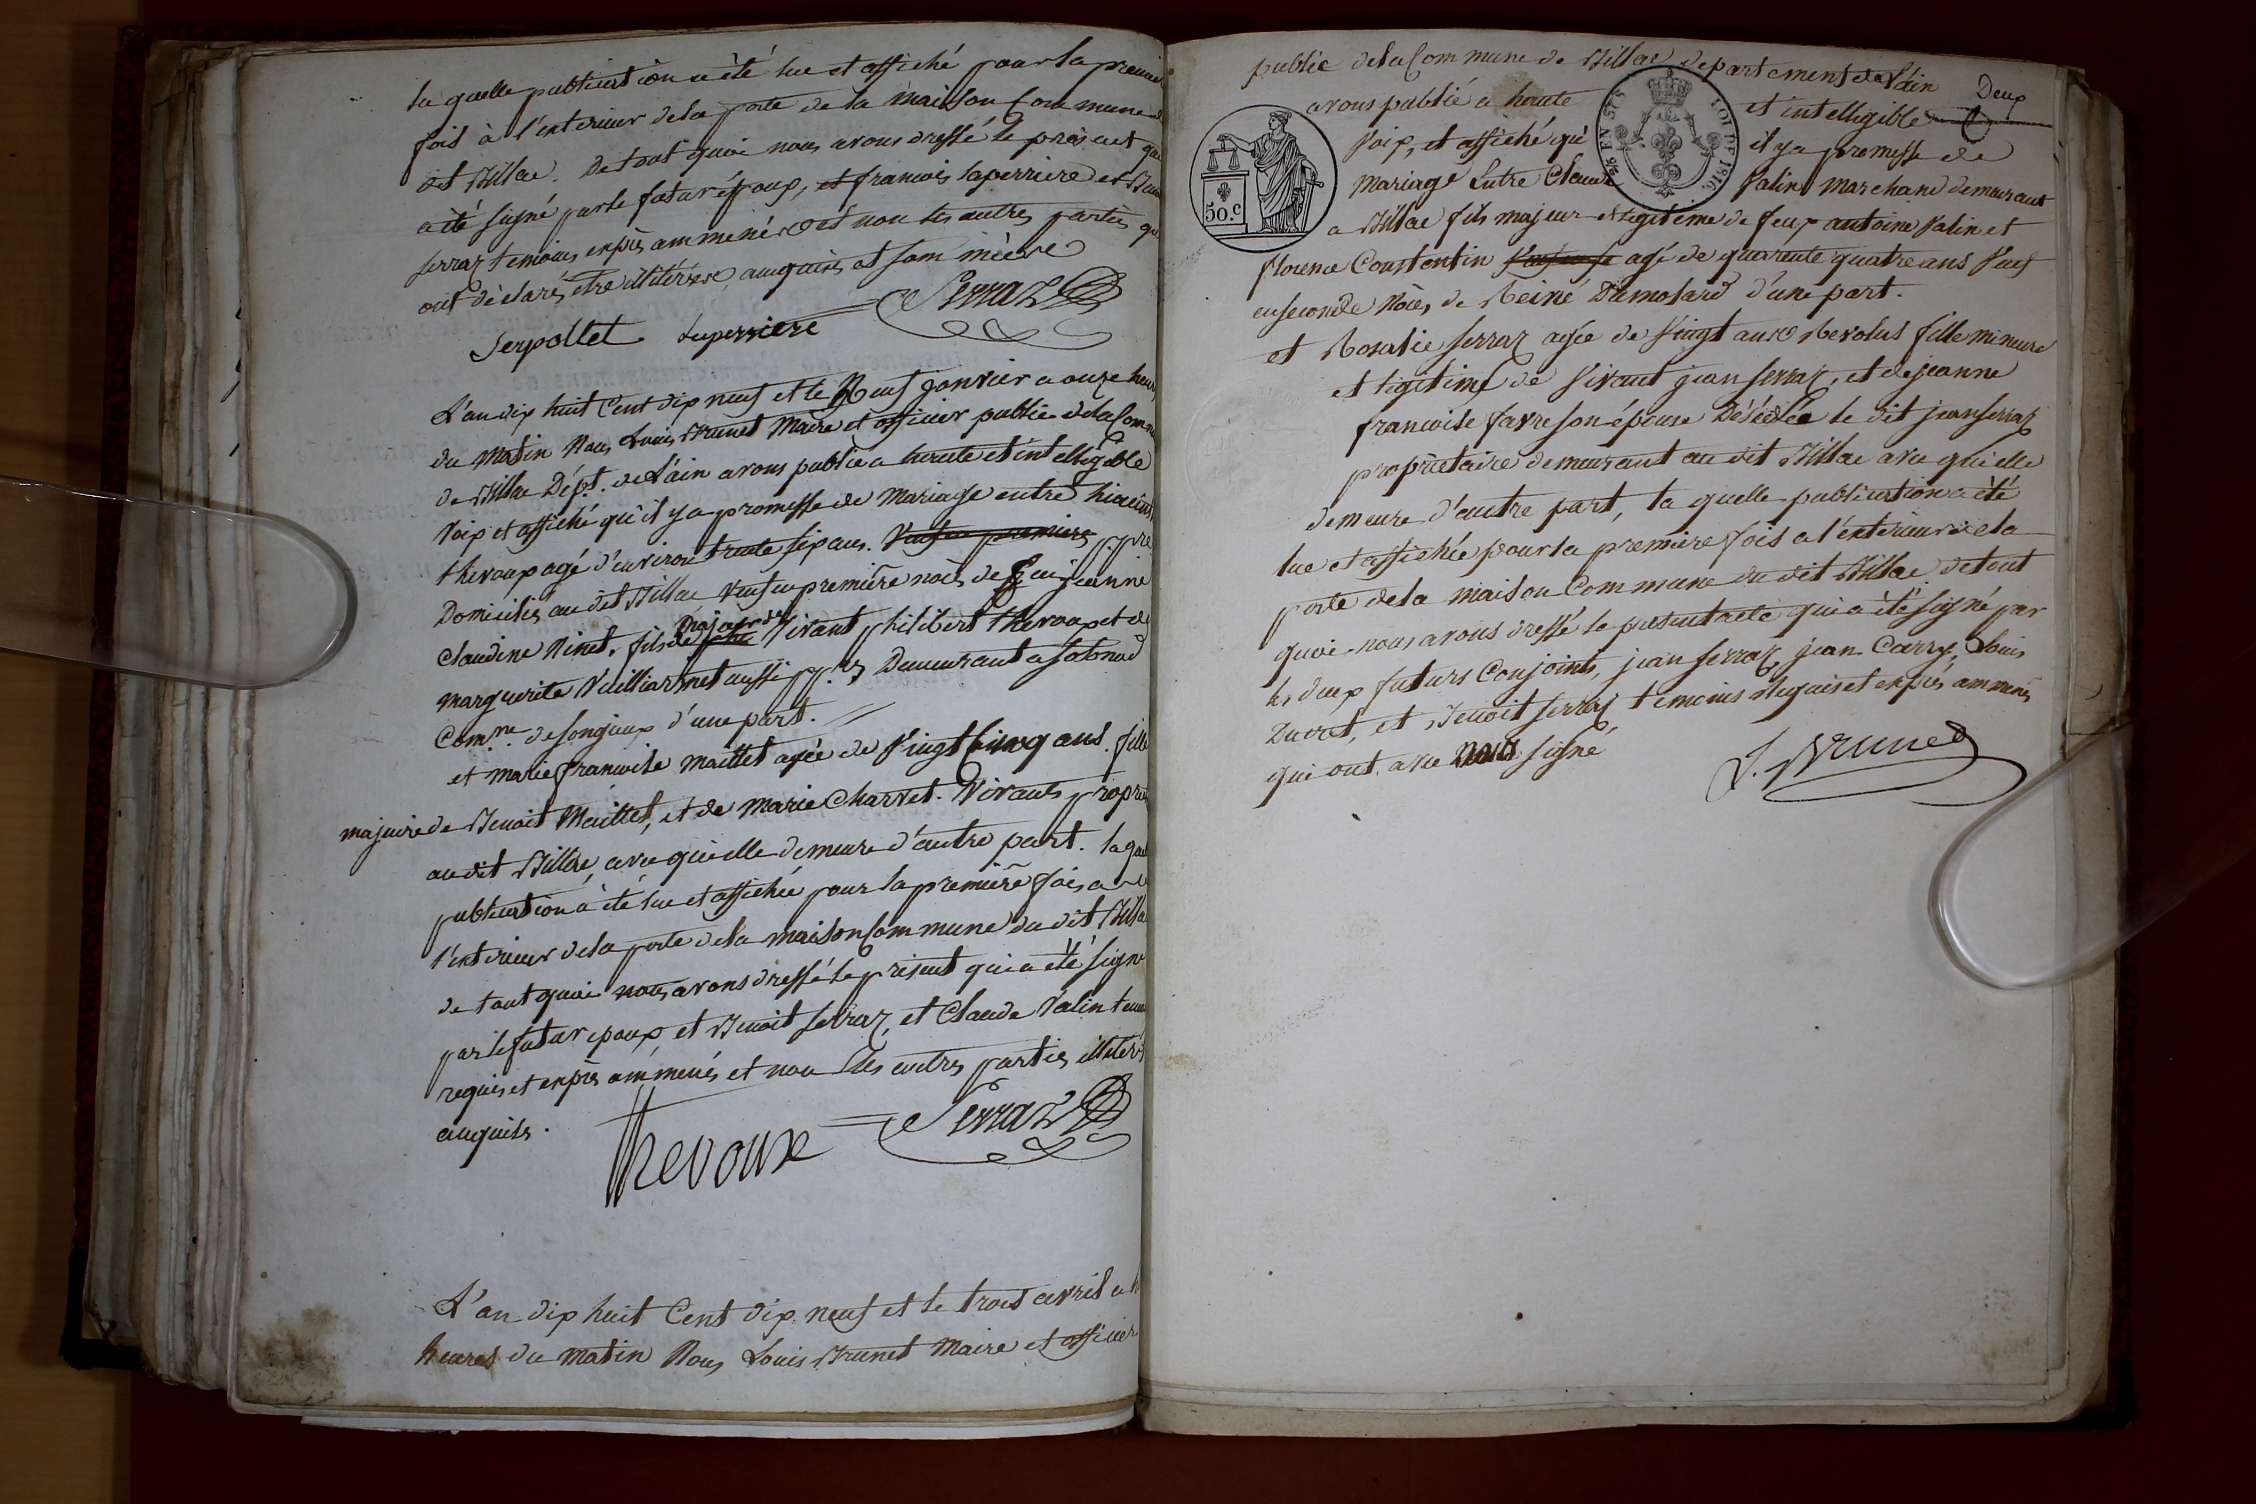 la quelle publication a été lue et affiché pour la premiere
fois à l'exterieur de la porte de la maison Commune du
dit Billac. De tout quoi nous avons dressé le présent qui
a été signé par le futur époux, et francois laperriere et
serraz temoins exprès amménés et non les autres parties qui
ont déclarés être illitérées, enquises et sommées
Serpollet Laperriere Serraz
L'an dix huit Cent dix neuf et le Neuf janvier a onze heures
du matin Nous Louis Brunet Maire et officier public de la Comne
de Billac Dépt. de L'ain avons publié a haute et intelligible
Voix et affiché qu'il y a promesse de Mariage entre hiacinte
thevoux agé d'environ trente six ans. Veuf en premiere ppre
Domicilié au dit Billac Veuf en première noces de jeanne
Claudine Ninet, fils majeur de Vivant philibert thevoux et de
marguerite Vuilliarmet aussi pp.res Demeurant a Sotonod
Com.ne de songieux d'une part.
et marie francoise maillet agée de Vingt Cinq ans. fille
majeure de Benoit Maillet, et de marie Charvet. Vivants propres
au dit Billac, avec qui elle demeure d'autre part. la quelle
publication a été lue et affichée pour la première fois a
l'exterieur de la porte de la maison Commune du dit Billac
de tout quoi nous avons dressé le présent qui a été signé
par le futur epoux, et Benoit serraz, et Claude Valin temoins
requis et exprès amménés et non les autres parties illitérées
enquises.
Thevoux Serraz
L'an dix huit Cent dix neuf et le trois avril a
heures du matin Nous Louis Brunet Maire et officier
public de la Commune de Billac departement de l'ain
Deux
avons publié a haute et intelligible
Voix, et affiché qu'il y a promesse de
Mariage Entre Claude Valin marchand demeurant
a Billac fils majeur et legitime de feux antoine Valin et
florence Constentin agé de quarente quatre ans Veuf
en seconde Noces de Reine Dumolard d'une part.
et Rosalie serraz agée de Vingt ans Revolus fille mineure
et legitime de Vivant jean serraz, et de jeanne
francoise favre son épouse Décédée le dit jean serraz
propriétaire demeurant au dit Billac avec qui elle
demeure d'autre part, la quelle publication a été
lue et affichée pour la premiere fois a l'exterieur de la
porte de la maison Commune du dit Billac de tout
quoi nous avons dressé le present acte qui a été signé par
les deux futurs Conjoints, jean serraz, jean Carry, Louis
Ducret, et Benoit serraz temoins Requis et exprès amménés
qui ont avec nous signé
L. Brunet
50.c
LOI DE 1816